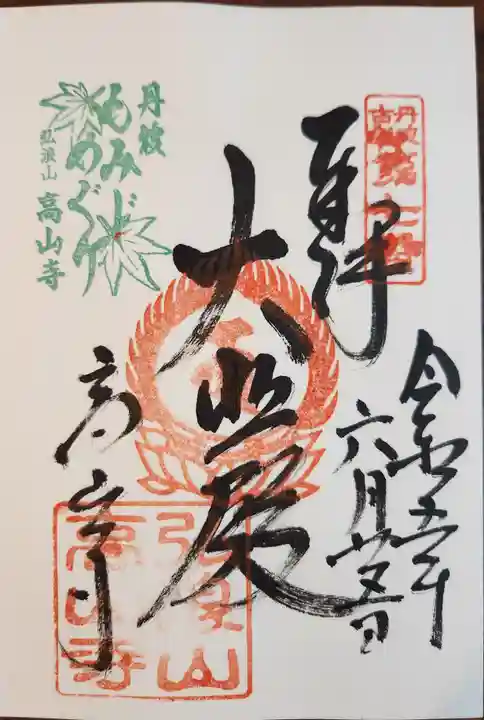 丹波
古刹
奉拝
令和五年
六月廿五日
大悲殿
高山寺
丹波
もみじ
めぐり
弘浪山 高山寺
弘浪山
高山寺